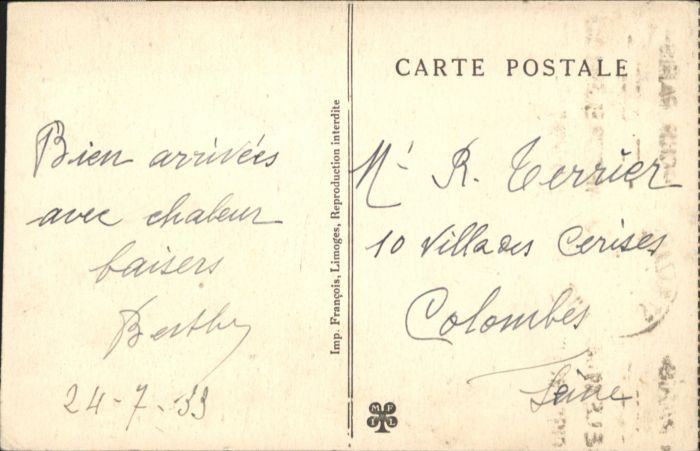 Bien arrivées
avec chaleur
baisers
Berthy
24-7-33
Imp. François, Limoges, Reproduction interdite
CARTE POSTALE
Mr R. Terrier
10 Villa des Cerises
Colombes
Seine
M F I L